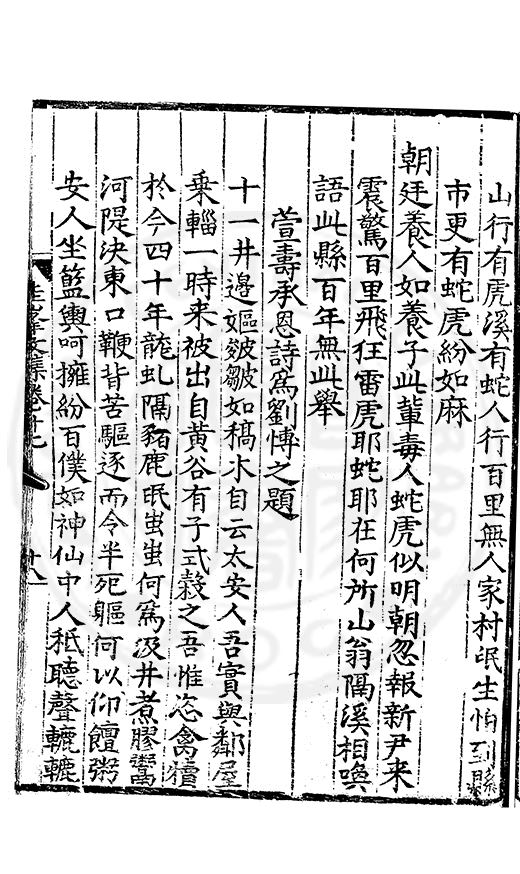 山行有虎溪有蛇人行百里無人家村氓生怕到縣
市更有蛇虎紛如麻
朝廷養人如養子此輩毒人蛇虎似明朝忽報新尹来
震驚百里飛狂雷虎耶蛇耶在何所山翁隔溪相喚
語此縣百年無此舉
萱壽承恩詩為劉博之題
十一井邊嫗皴皺如稿木自云太安人吾實與鄰屋
乗輜一時来被出自黄谷有子式榖之吾惟恣禽犢
於今四十年龍虬隔豬鹿眠蚩蚩何為汲井煮膠鬻
河隄決東口鞭背苦驅逐而今半死軀何以仰饘粥
安人坐籃輿呵擁紛百僕如神仙中人秪聽聲轆轆
文集卷
十八